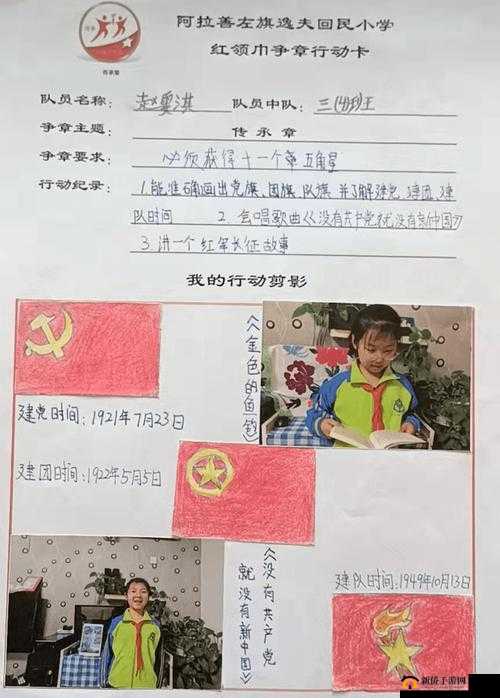 阿拉善左旗逸夫回民小学
红领巾争章行动卡
传承章
队员名称：
队员中队：三（4）班
争章主题：传承章
争章要求：必须获得十一个第五角星
行动纪录：1.能准确画出党旗、团旗、队旗 并了解建党 建团、建
队时间 2.会唱歌曲《没有共产党就没有新中国》
3.讲一个红军长征故事
我的行动剪影
《金色的鱼钩》
建党时间：1921年7月23日
建团时间：1922年5月5日
《没有共产党
就没有新中国》
建队时间：1949年10月13日
新侠手游网